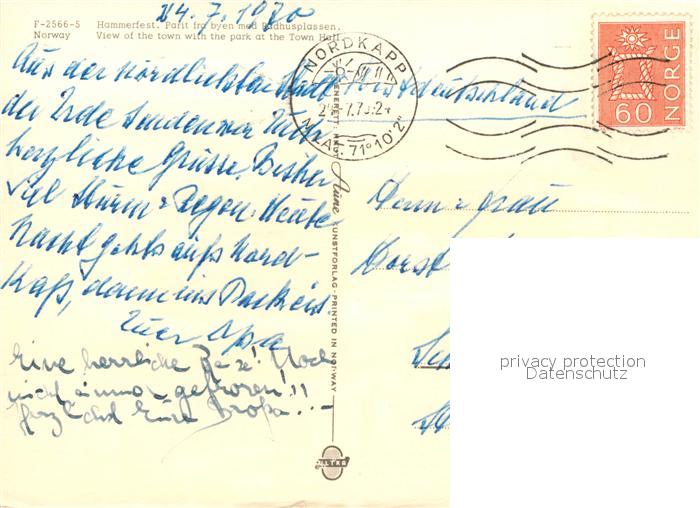 24.7.1970
F-2566-5 Hammerfest. Parti fra byen med Rådhusplassen.
Norway View of the town with the park at the Town Hall
NORDKAPP
N.LAT. 71°10'2"
NORGE
60
Aus der nördlichsten Stadt
der Erde senden wir Euch
herzliche Grüsse. Bisher
viel Sturm + Regen. Heute
Nacht gehts aufs Nord-
Kap, dann ins Packeis.
Euer Opa
Eine herrliche Reise! Noch
nicht einmal gefroren!!
Herzlichst Eure Großm...
Westdeutschland
Herrn + Frau
Horst
Aune KUNSTFORLAG - PRINTED IN NORWAY
privacy protection
Datenschutz